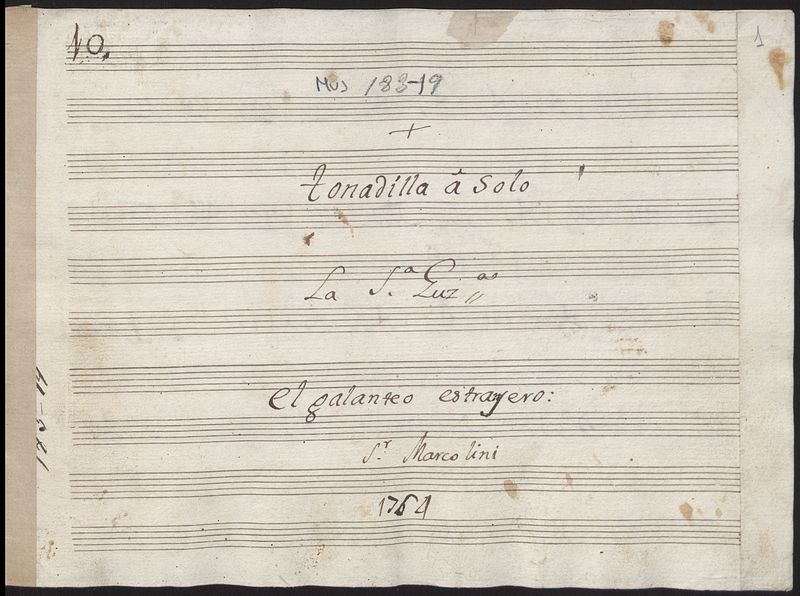 10.
1
Mus 183-19
+
tonadilla â Solo
La S.ª Luz
el galanteo estrangero:
S.r Marcolini
1764
183-19